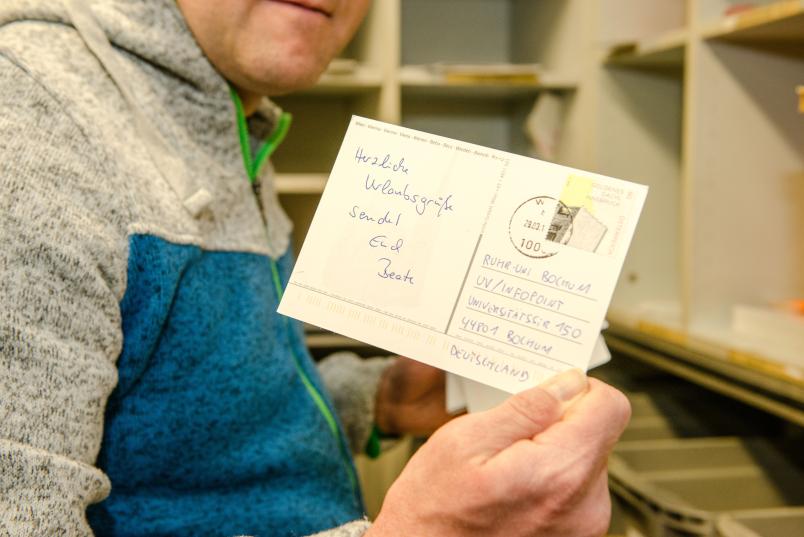 Herzliche
Urlaubsgrüße
sendet
Euch
Beate
GOLDENES
DACHL
INNSBRUCK
ÖSTERREICH
W
100
RUHR-UNI BOCHUM
UV/INFOPOINT
UNIVERSITÄTSSTR 150
44801 BOCHUM
DEUTSCHLAND